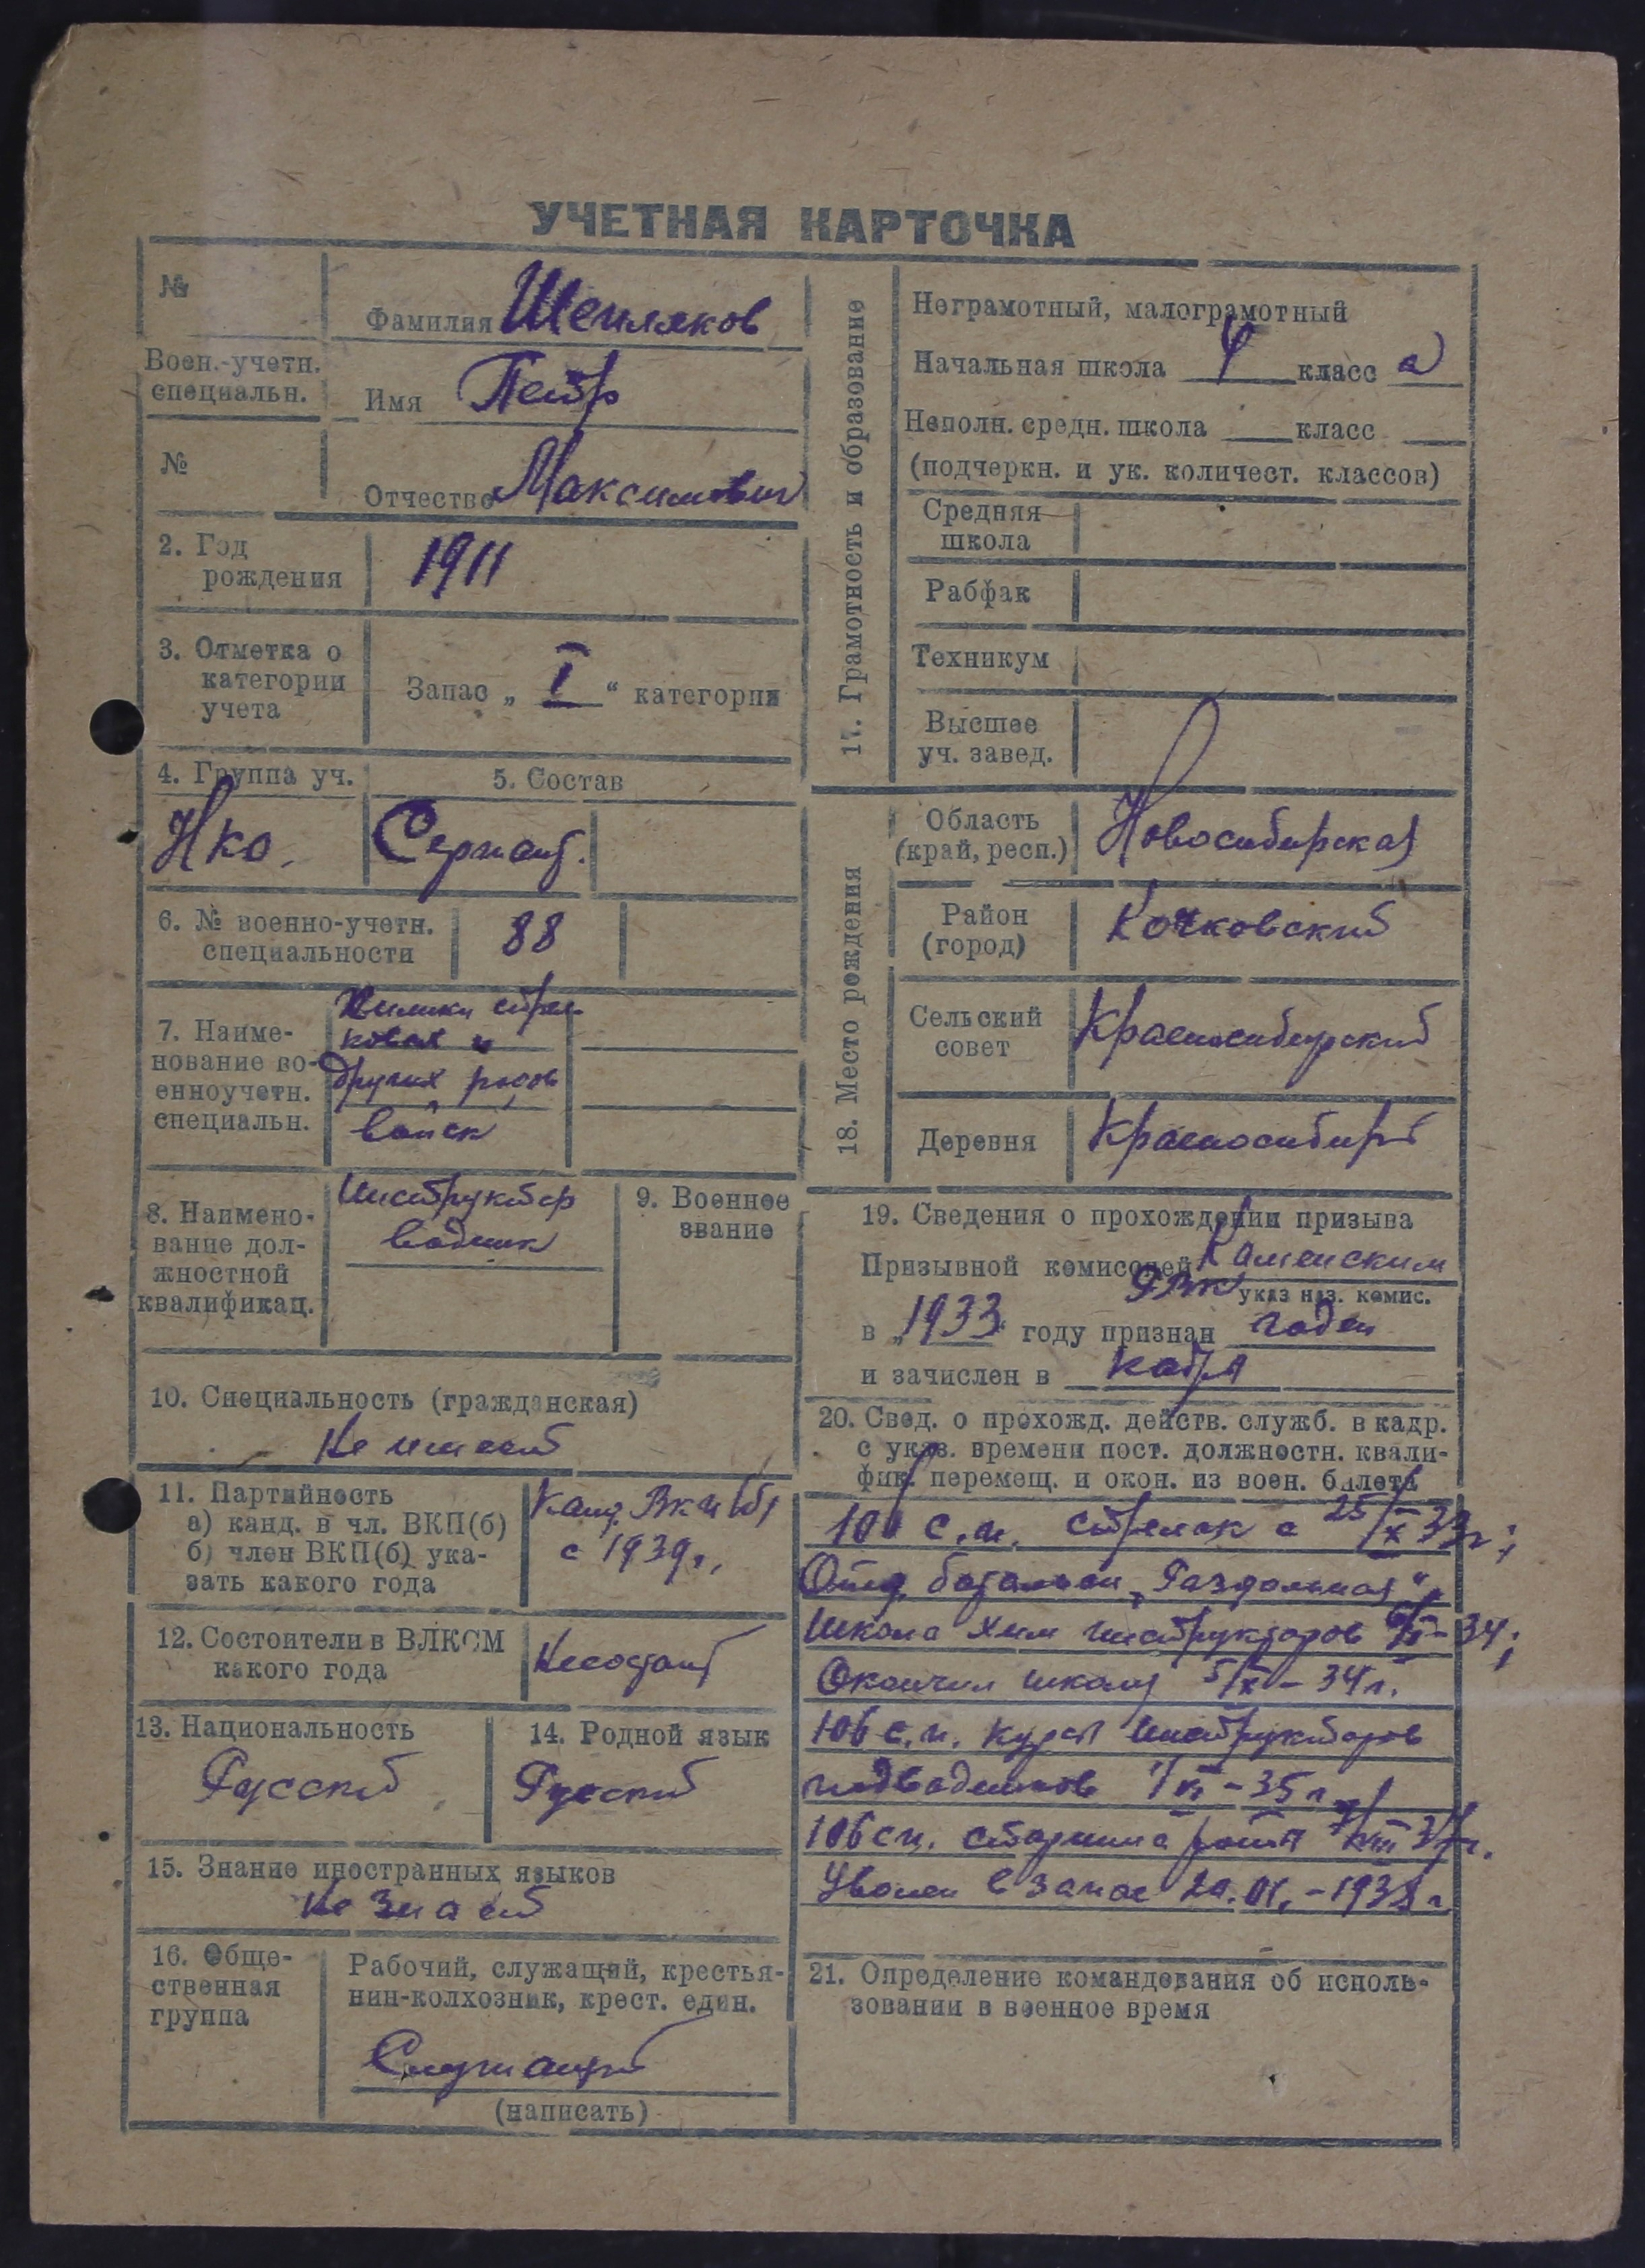 УЧЕТНАЯ КАРТОЧКА
№
Фамилия Шепляков
Воен.-учетн.
специальн.
Имя Петр
№
Отчество Максимович
2. Год
рождения
1911
3. Отметка о
категории
учета
Запас „ I “ категории
4. Группа уч.
5. Состав
Нко.
Сержант.
6. № военно-учетн.
специальности
88
7. Наиме-
нование во-
енноучетн.
специальн.
Химики стрел-
ковая и
других родов
войск
8. Наимено-
вание дол-
жностной
квалификац.
Инструктор
9. Военное
звание
10. Специальность (гражданская)
Не имеет
11. Партийность
а) канд. в чл. ВКП(б)
б) член ВКП(б) ука-
зать какого года
Канд. ВКП(б)
с 1939 г.
12. Состоители в ВЛКСМ
какого года
Несостоит
13. Национальность
Русский
14. Родной язык
Русский
15. Знание иностранных языков
Не знает
16. Обще-
ственная
группа
Рабочий, служащий, крестья-
нин-колхозник, крест. един.
Служащий
(написать)
17. Грамотность и образование
Неграмотный, малограмотный
Начальная школа 4 класс а
Неполн. средн. школа класс
(подчеркн. и ук. количест. классов)
Средняя
школа
Рабфак
Техникум
Высшее
уч. завед.
18. Место рождения
Область
(край, респ.)
Новосибирская
Район
(город)
Кочковский
Сельский
совет
Красносибирский
Деревня
Красносибирь
19. Сведения о прохождении призыва
Призывной комиссией Каменским
РВК
указ наз. комис.
в „1933“ году признан годен
и зачислен в кадры
20. Свед. о прохожд. действ. служб. в кадр.
с указ. времени пост. должностн. квали-
фик. перемещ. и окон. из воен. билета
с.п. стрелок с 25/X 33г;
Отд. батальон „Раздольная“
Школа Хим инструкторов - 34;
Окончил школу - 34 г.
106 с.п. курсы инструкторов
- 35 г.
106 сп. старшина роты 37г.
Уволен в запас - 1938 г
21. Определение командования об исполь-
зовании в военное время